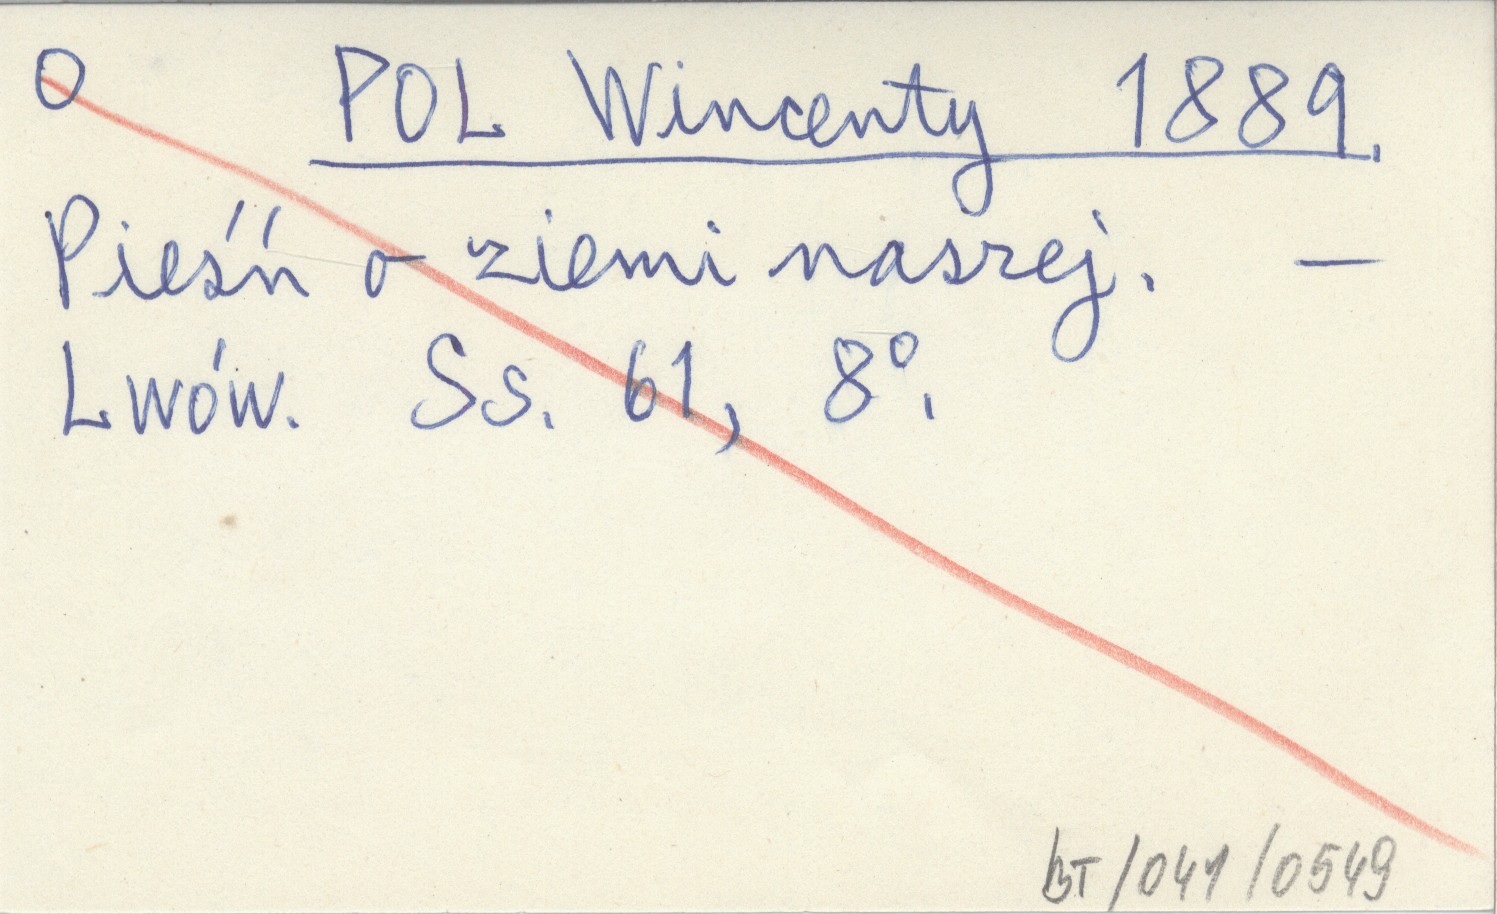 O POL Wincenty 1889.
Pieśń o ziemi naszej. —
Lwów. Ss. 61, 8°.
BT/041/0549